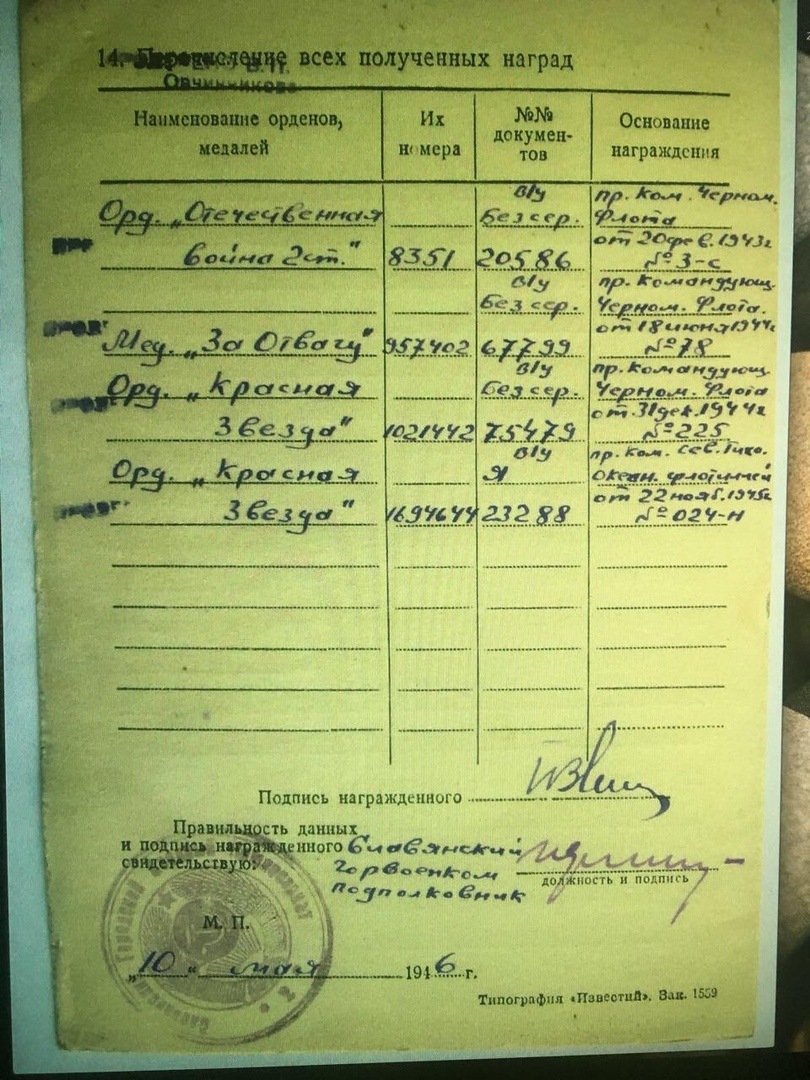 14. Перечисление всех полученных наград
Овчинникова
Наименование орденов, медалей
Их номера
№№ документов
Основание награждения
Орд. „Отечественная
война 2 ст."
8351
в/у
без сер.
20586
пр. Ком. Черном.
Флота
от 20 фев. 1943г
№ 3-с
Мед. „За Отвагу"
957402
в/у
без сер.
67799
пр. Командующ.
Черном. Флота.
от 18 июня 1944г
№ 78
Орд. „Красная
Звезда"
1021442
в/у
без сер.
75479
пр. Командующ.
Черном. Флота
от 31 дек. 1944г
№ 225
Орд. „Красная
Звезда"
1694644
в/у
Я
23288
пр. Ком. Сев. Тихо.
Океан. флотилией
от 22 нояб. 1945г
№ 024-н
Подпись награжденного
Правильность данных
и подпись награжденного
свидетельствую:
Славянский
Горвоенком
подполковник
должность и подпись
М. П.
„10 “ мая 1946 г.
Типография «Известий». Зак. 1559